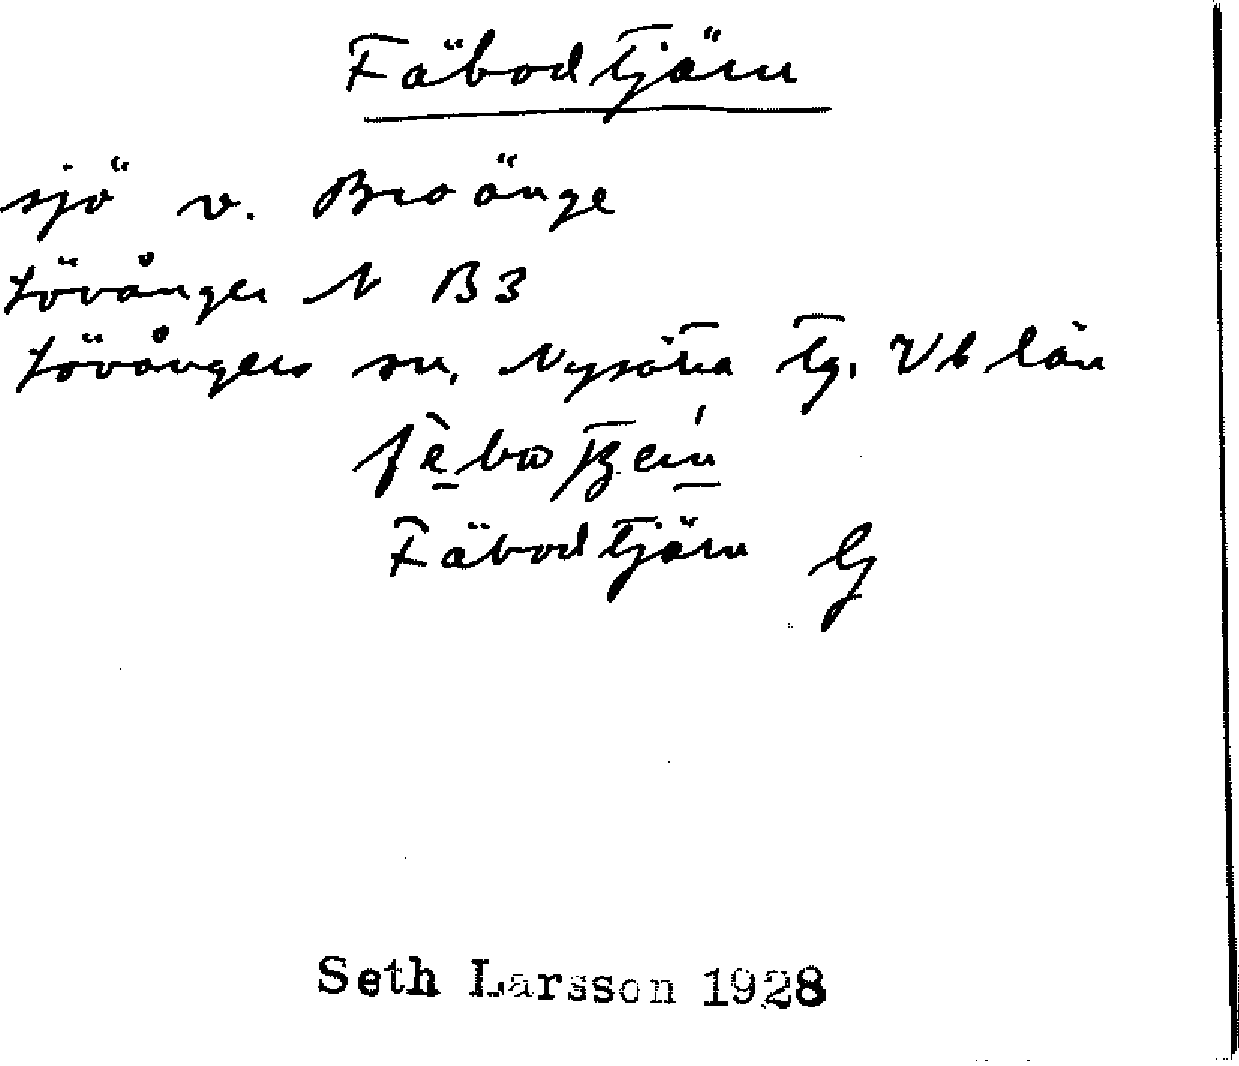 Fäbodtjärn
sjö v. Broänge
Lövånger N B3
Lövångers sn. Nysätra tg. Vb län
Fäbodtjärn G
Seth Larsson 1928